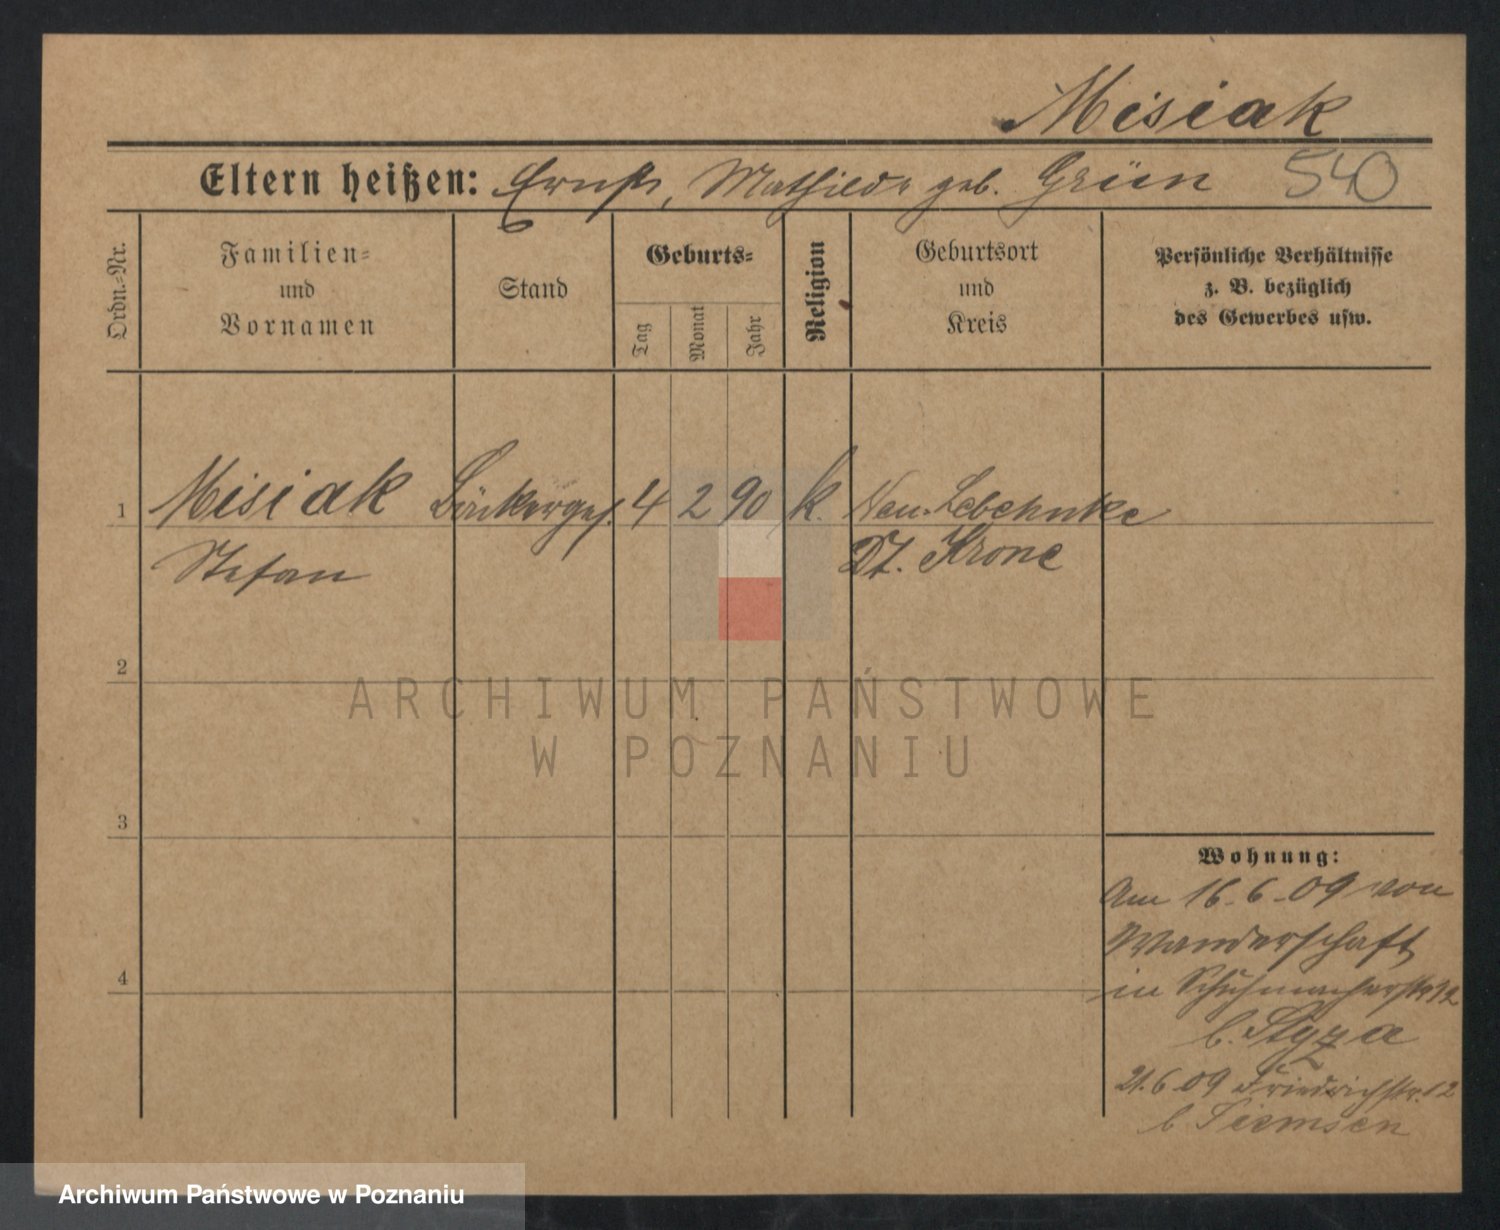 Misiak
Eltern heißen: Ernst, Mathilde geb. Grün 540
Ordn.-Nr.
Familien-
und
Vornamen
Stand
Geburts-
Tag
Monat
Jahr
Religion
Geburtsort
und
Kreis
Persönliche Verhältnisse
z. B. bezüglich
des Gewerbes usw.
1 Misiak Bäckerges. 4 2 90 k. Neu-Lebehnke
Stefan Dt. Krone
2
ARCHIWUM PAŃSTWOWE
W POZNANIU
3
Wohnung:
Am 16.6.09 von
Wanderschaft
4
in Schuhmacherstr 12
b. Styza
21.6.09 Friedrichstr. 12
b Tiemsen
Archiwum Państwowe w Poznaniu